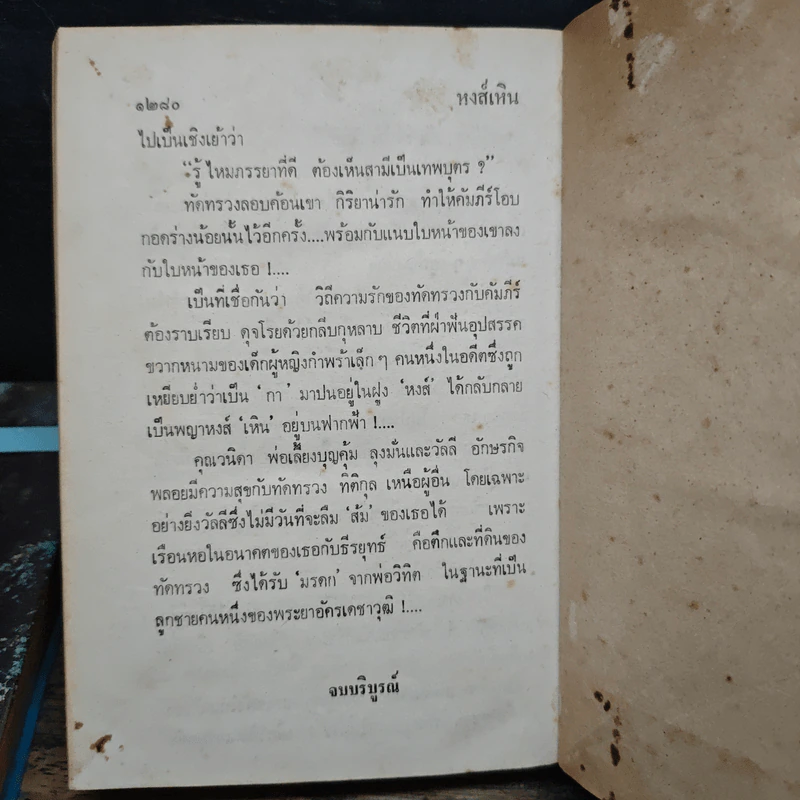 ๑๒๘๐ หงส์เหิน
ไปเป็นเชิงเย้าว่า
“รู้ ไหมภรรยาที่ดี ต้องเห็นสามีเป็นเทพบุตร ?”
ทัดทรวงลอบค้อนเขา กิริยาน่ารัก ทำให้คัมภีร์โอบ
กอดร่างน้อยนั้นไว้อีกครั้ง....พร้อมกับแนบใบหน้าของเขาลง
กับใบหน้าของเธอ !....
เป็นที่เชื่อกันว่า วิถีความรักของทัดทรวงกับคัมภีร์
ต้องราบเรียบ ดุจโรยด้วยกลีบกุหลาบ ชีวิตที่ฝ่าฟันอุปสรรค
ขวากหนามของเด็กผู้หญิงกำพร้าเล็ก ๆ คนหนึ่งในอดีตซึ่งถูก
เหยียบย่ำว่าเป็น ‘กา’ มาปนอยู่ในฝูง ‘หงส์’ ได้กลับกลาย
เป็นพญาหงส์ ‘เหิน’ อยู่บนฟากฟ้า !....
คุณวนิดา พ่อเลี้ยงบุญคุ้ม ลุงมั่นและวัลลี อักษรกิจ
พลอยมีความสุขกับทัดทรวง ทิติกุล เหนือผู้อื่น โดยเฉพาะ
อย่างยิ่งวัลลีซึ่งไม่มีวันที่จะลืม ‘ส้ม’ ของเธอได้ เพราะ
เรือนหอในอนาคตของเธอกับธีรยุทธ์ คือตึกและที่ดินของ
ทัดทรวง ซึ่งได้รับ ‘มรดก’ จากพ่อวิทิต ในฐานะที่เป็น
ลูกชายคนหนึ่งของพระยาอัครเดชาวุฒิ !....
จบบริบูรณ์